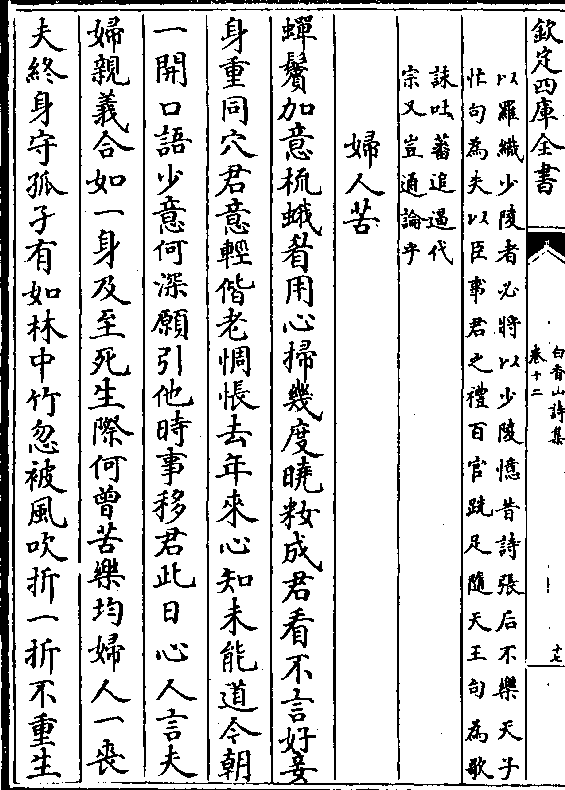 欽定四庫全書
白香山詩集
卷十二
十七
以羅織少陵者必將以少陵憶昔詩張后不樂天子
忙句為夫以臣事君之禮百官跣足隨天王句為歌
誅吐蕃追過代
宗又豈通論乎
婦人苦
蟬鬢加意梳蛾眉用心掃幾度曉粧成君看不言好妾
身重同穴君意輕偕老惆悵去年來心知未能道今朝
一開口語少意何深願引他時事移君此日心人言夫
婦親義合如一身及至死生際何曾苦樂均婦人一喪
夫終身守孤子有如林中竹忽被風吹折一折不重生